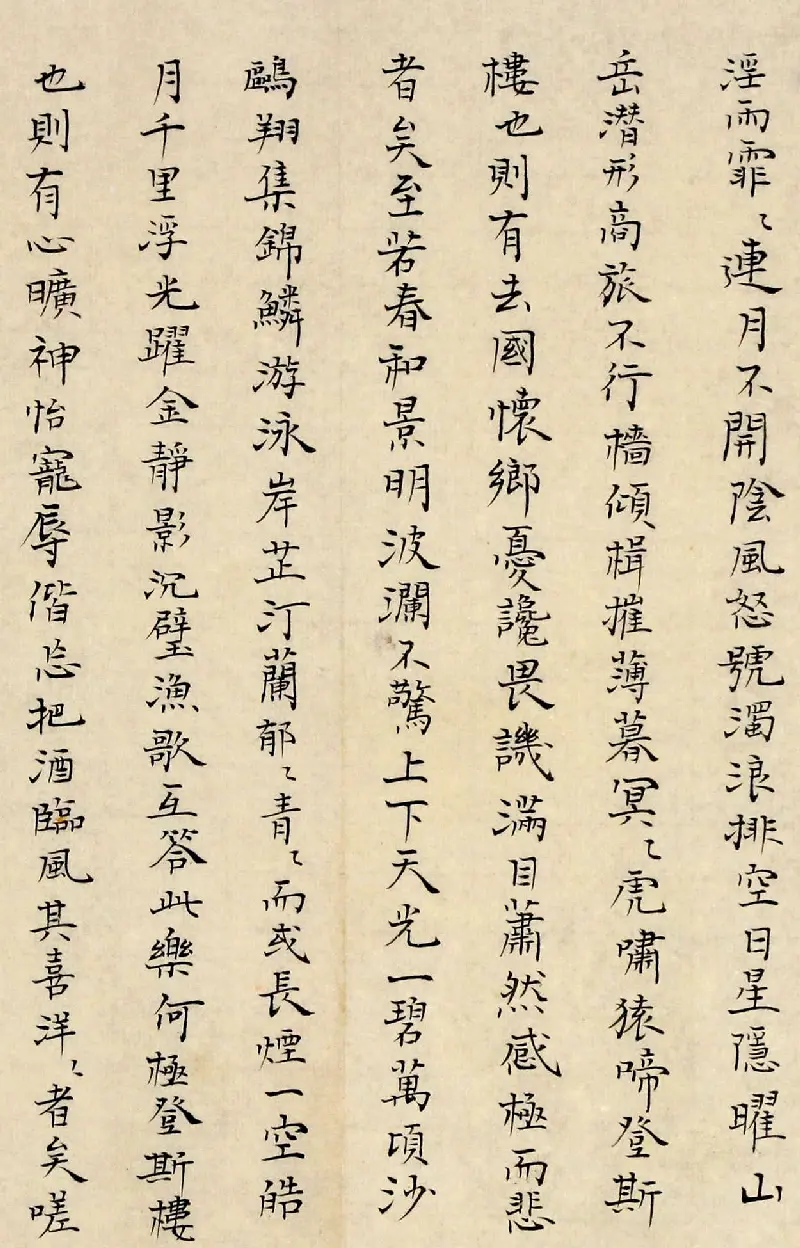 淫雨霏〻連月不開陰風怒號濁浪排空日星隱曜山
岳潛形商旅不行檣傾楫摧薄暮冥〻虎嘯猿啼登斯
樓也則有去國懷鄉憂讒畏譏滿目蕭然感極而悲
者矣至若春和景明波瀾不驚上下天光一碧萬頃沙
鷗翔集錦鱗游泳岸芷汀蘭郁〻青〻而或長煙一空皓
月千里浮光躍金靜影沉璧漁歌互答此樂何極登斯樓
也則有心曠神怡寵辱偕忘把酒臨風其喜洋〻者矣嗟